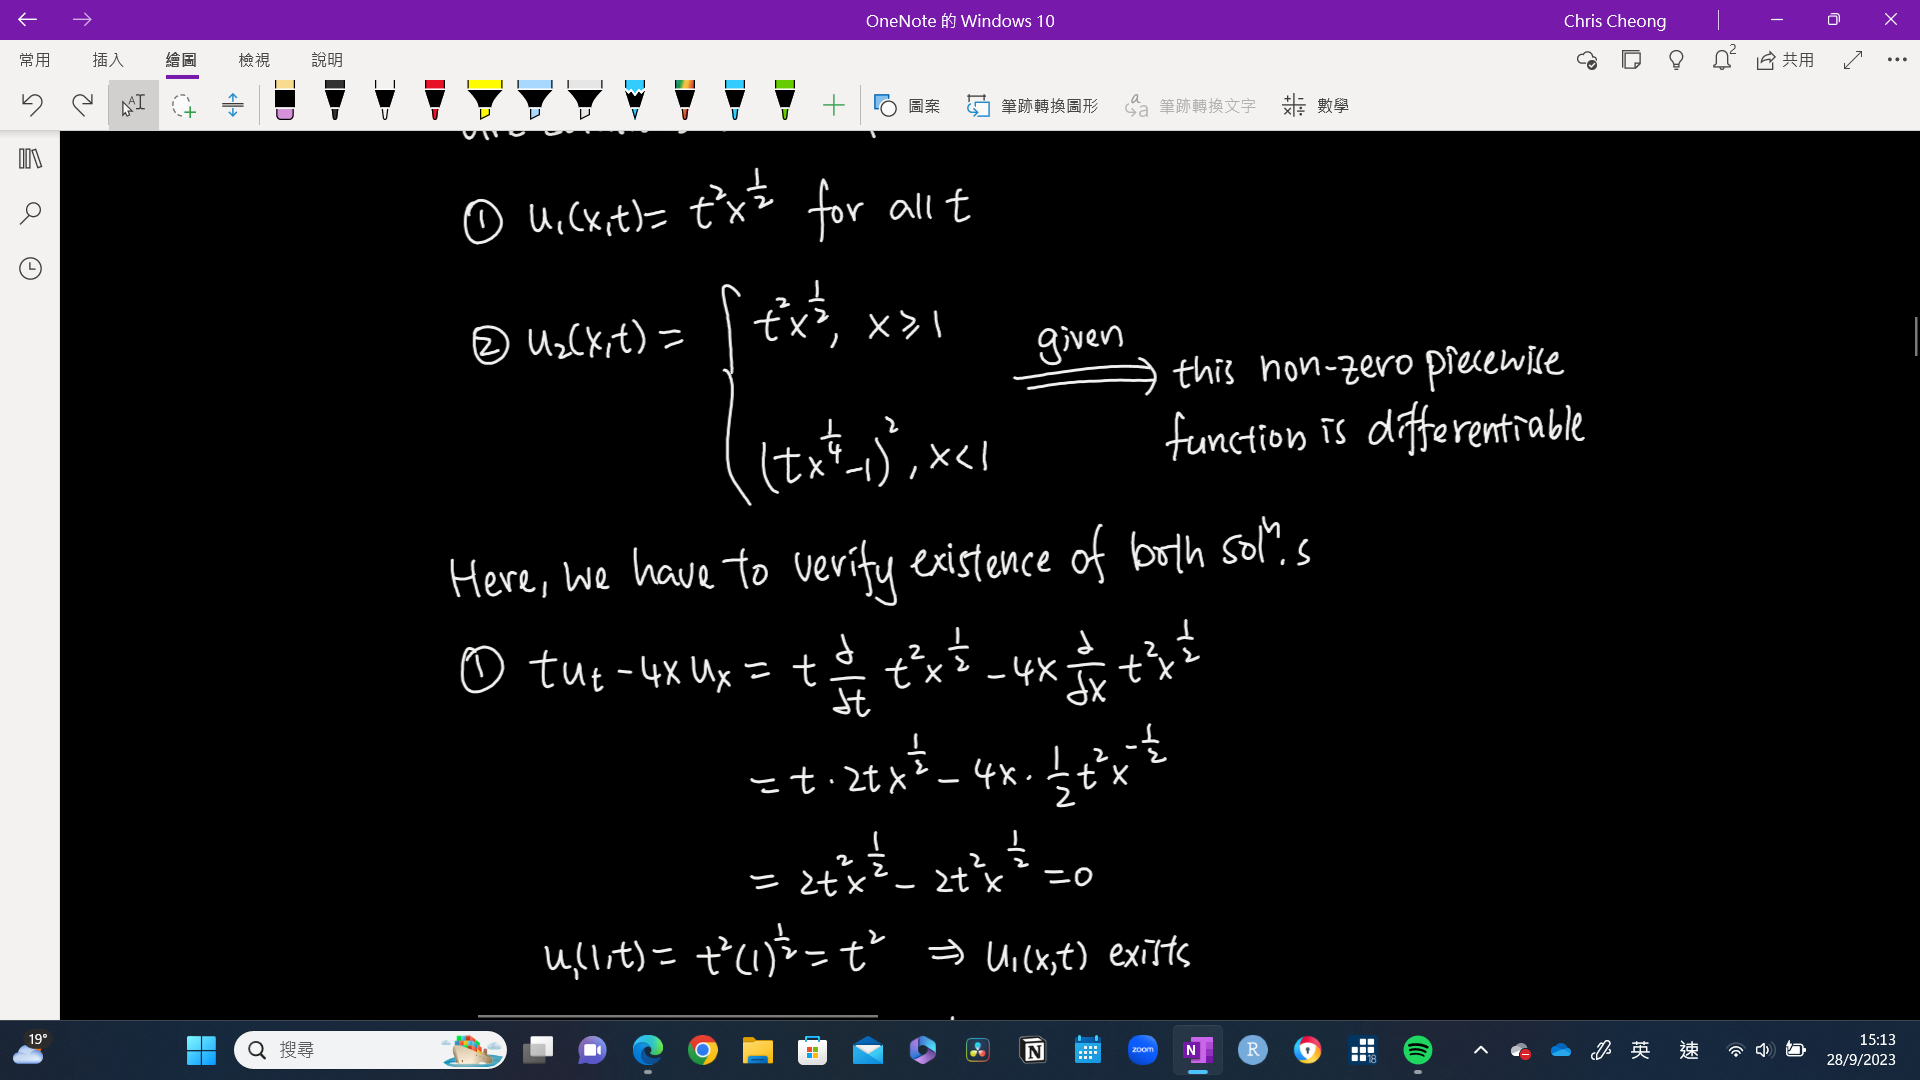 OneNote 的 Windows 10
Chris Cheong
常用 插入 繪圖 檢視 說明
2
共用
圖案 筆跡轉換圖形 筆跡轉換文字 數學
① u₁(x,t) = t²x^{1/2} for all t
② u₂(x,t) = { t²x^{1/2}, x ≥ 1
(tx^{1/4} -1)², x < 1
given ⇒ this non-zero piecewise
function is differentiable
Here, we have to verify existence of both solⁿ.s
① tu_t - 4xu_x = t ∂/∂t t²x^{1/2} - 4x ∂/∂x t²x^{1/2}
= t · 2tx^{1/2} - 4x · 1/2 t²x^{-1/2}
= 2t²x^{1/2} - 2t²x^{1/2} = 0
u₁(1,t) = t²(1)^{1/2} = t² ⇒ u₁(x,t) exists
19°
搜尋
zoom
N
R
18
英
速
15:13
28/9/2023